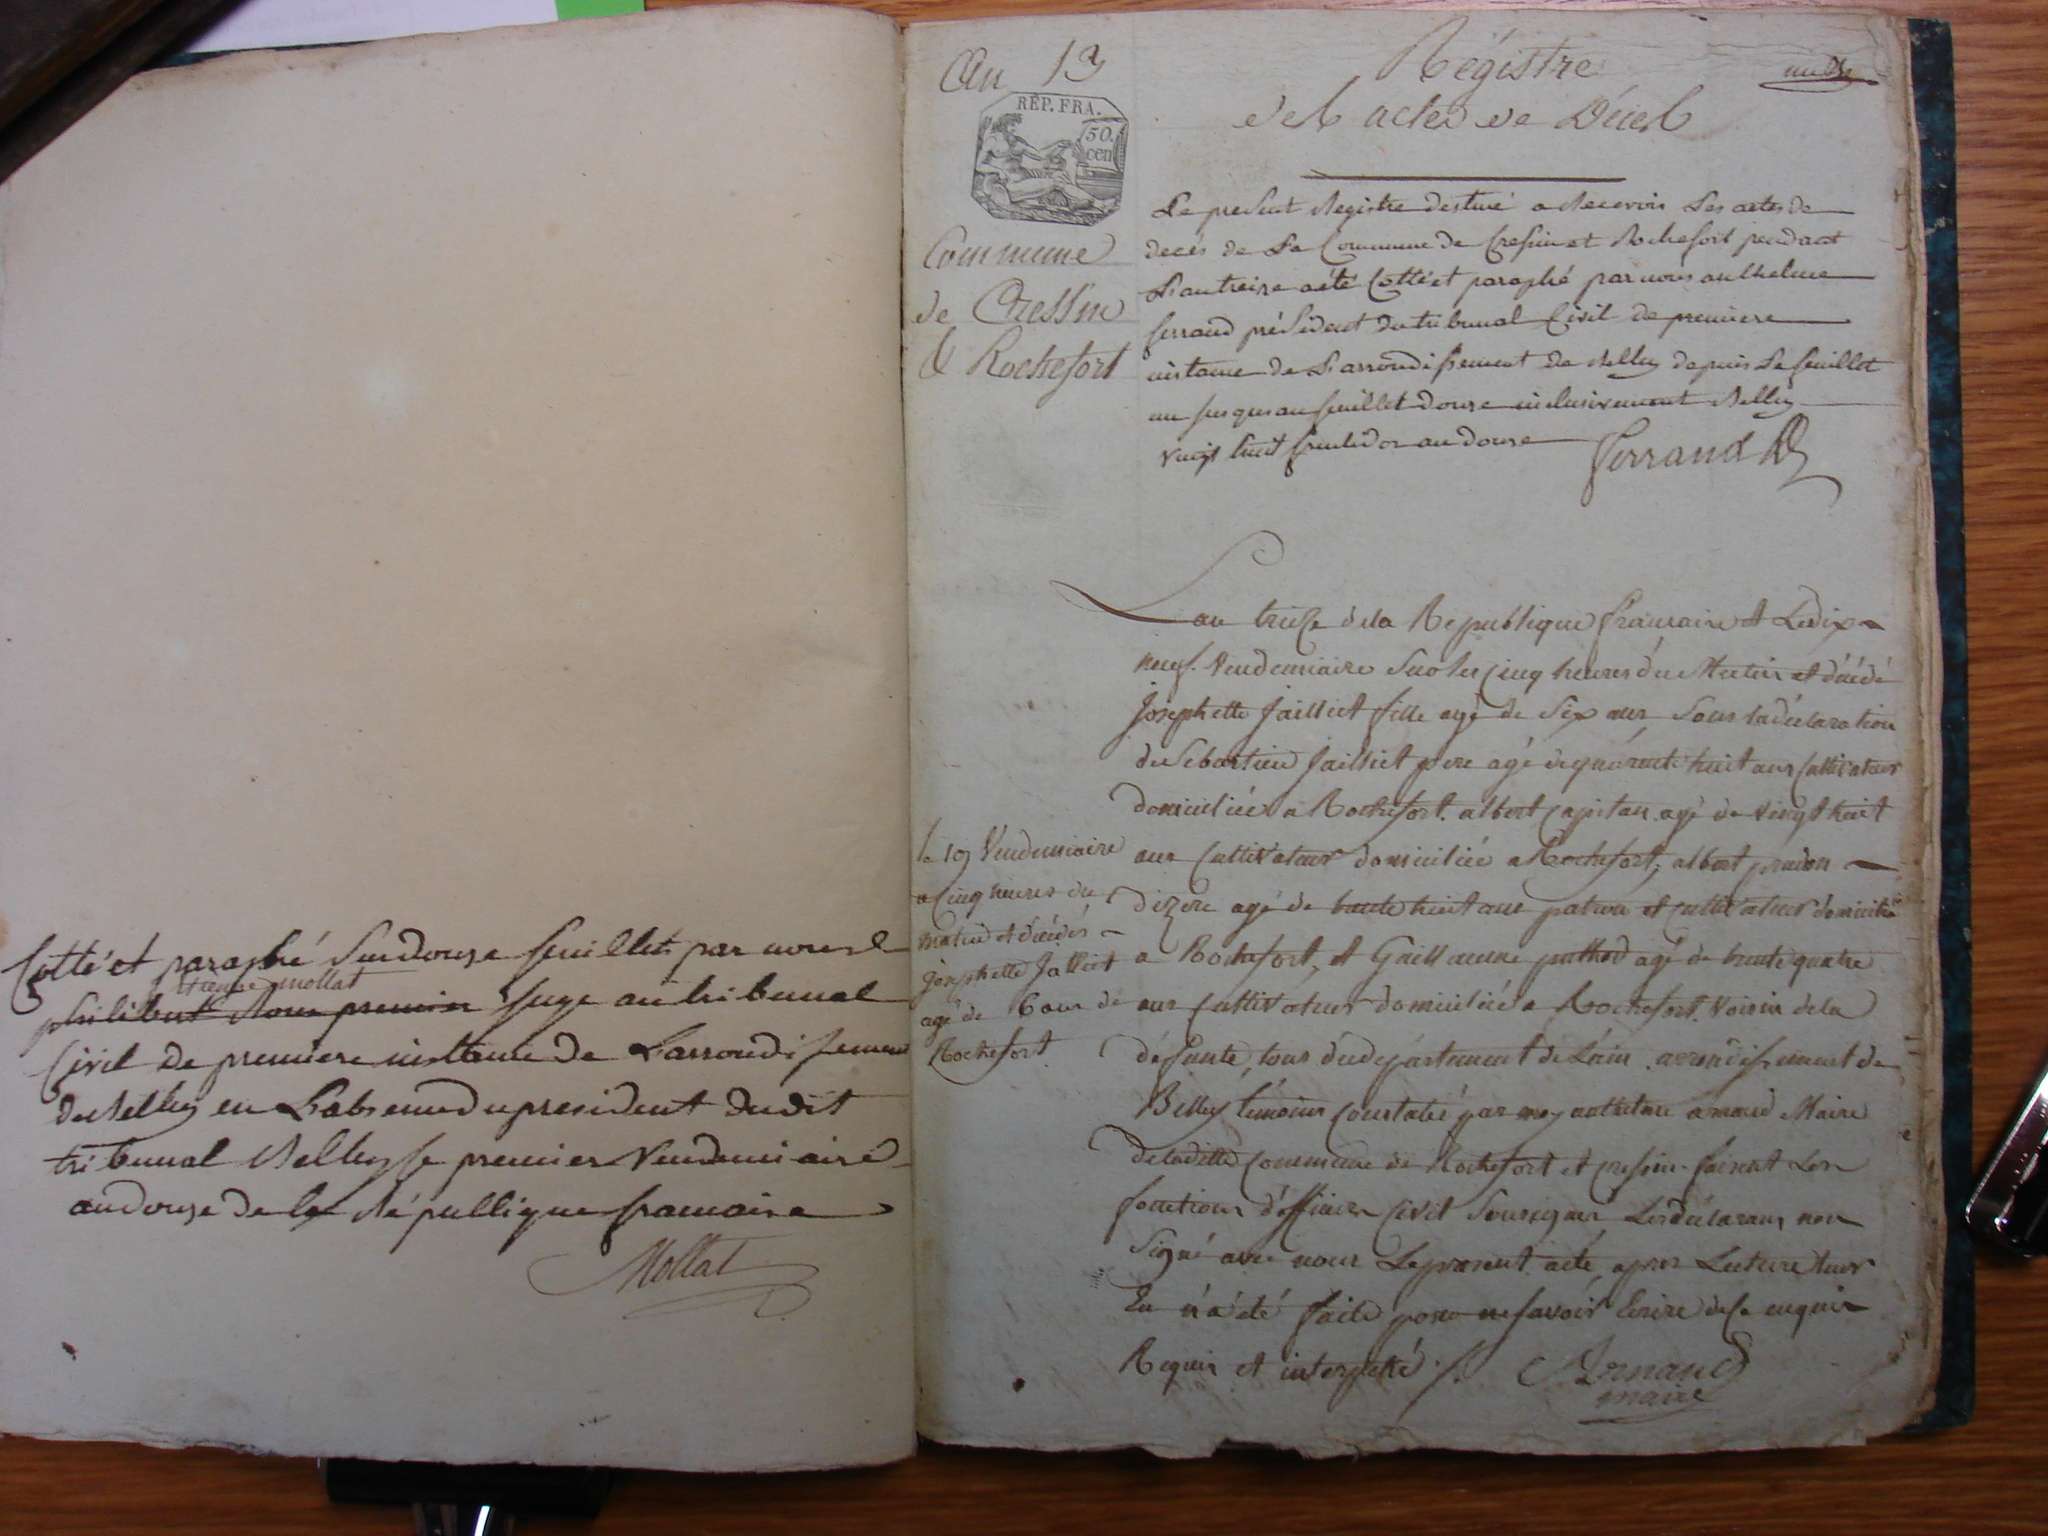 Cotté et paraphé sur douze feuillets par nous
etienne mollat
philibert Roux premier juge au tribunal
Civil de premiere instance de L'arrondissement
de Belley en L'absence du president dudit
tribunal Belley le premier Vendemiaire
an douze de la République francaise
Mollat
An 13
REP. FRA.
50.
cen
Commune
de Cressin
& Rochefort
le 19 Vendemiaire
a Cinq heures du
matin est décédés
josephette Jalliet
agé de 6 ans de
Rochefort
Régistre
des actes de Décès
Le present Registre destiné a Recevoir Les actes de
decès de La Commune de Cressin et Rochefort pendant
L'an treize a été Cotté et paraphé par nous anthelme
ferrand président du tribunal Civil de premiere
instance de L'arrondissement de Belley depuis Le feuillet
un jusques au feuillet douze inclusivement Belley
vingt huit fructidor an douze Ferrand
L'an treize de la Republique francaise et Le dix
neuf Vendemiaire sur les Cinq heures du Matin est décédé
Josephette Jailliet fille agé de Six ans, Sous la déclaration
de Sebastien Jailliet pere agé de quarente huit ans Cultivateur
domiciliée a Rochefort. albert Capitan agé de vingt huit
ans Cultivateur domiciliée a Rochefort, albert
agé de trante huit ans patron et Cultivateur domicilié
a Rochefort, et Guillaume agé de trente quatre
ans Cultivateur domiciliée a Rochefort. Voisin de la
défunte, tous du département de L'ain arrondissement de
Belley témoins Constaté par moy anthelme arnaud Maire
de laditte Commune de Rochefort et cressin faisant Les
fonctions d'officier Civil Soussigner Les déclarans non
Signé avec nous Le present acte, apres Lecture Leur
En n'a été faite pour ne savoir Ecrire de ce enquis
Requis et interpellé ./. Arnaud
maire